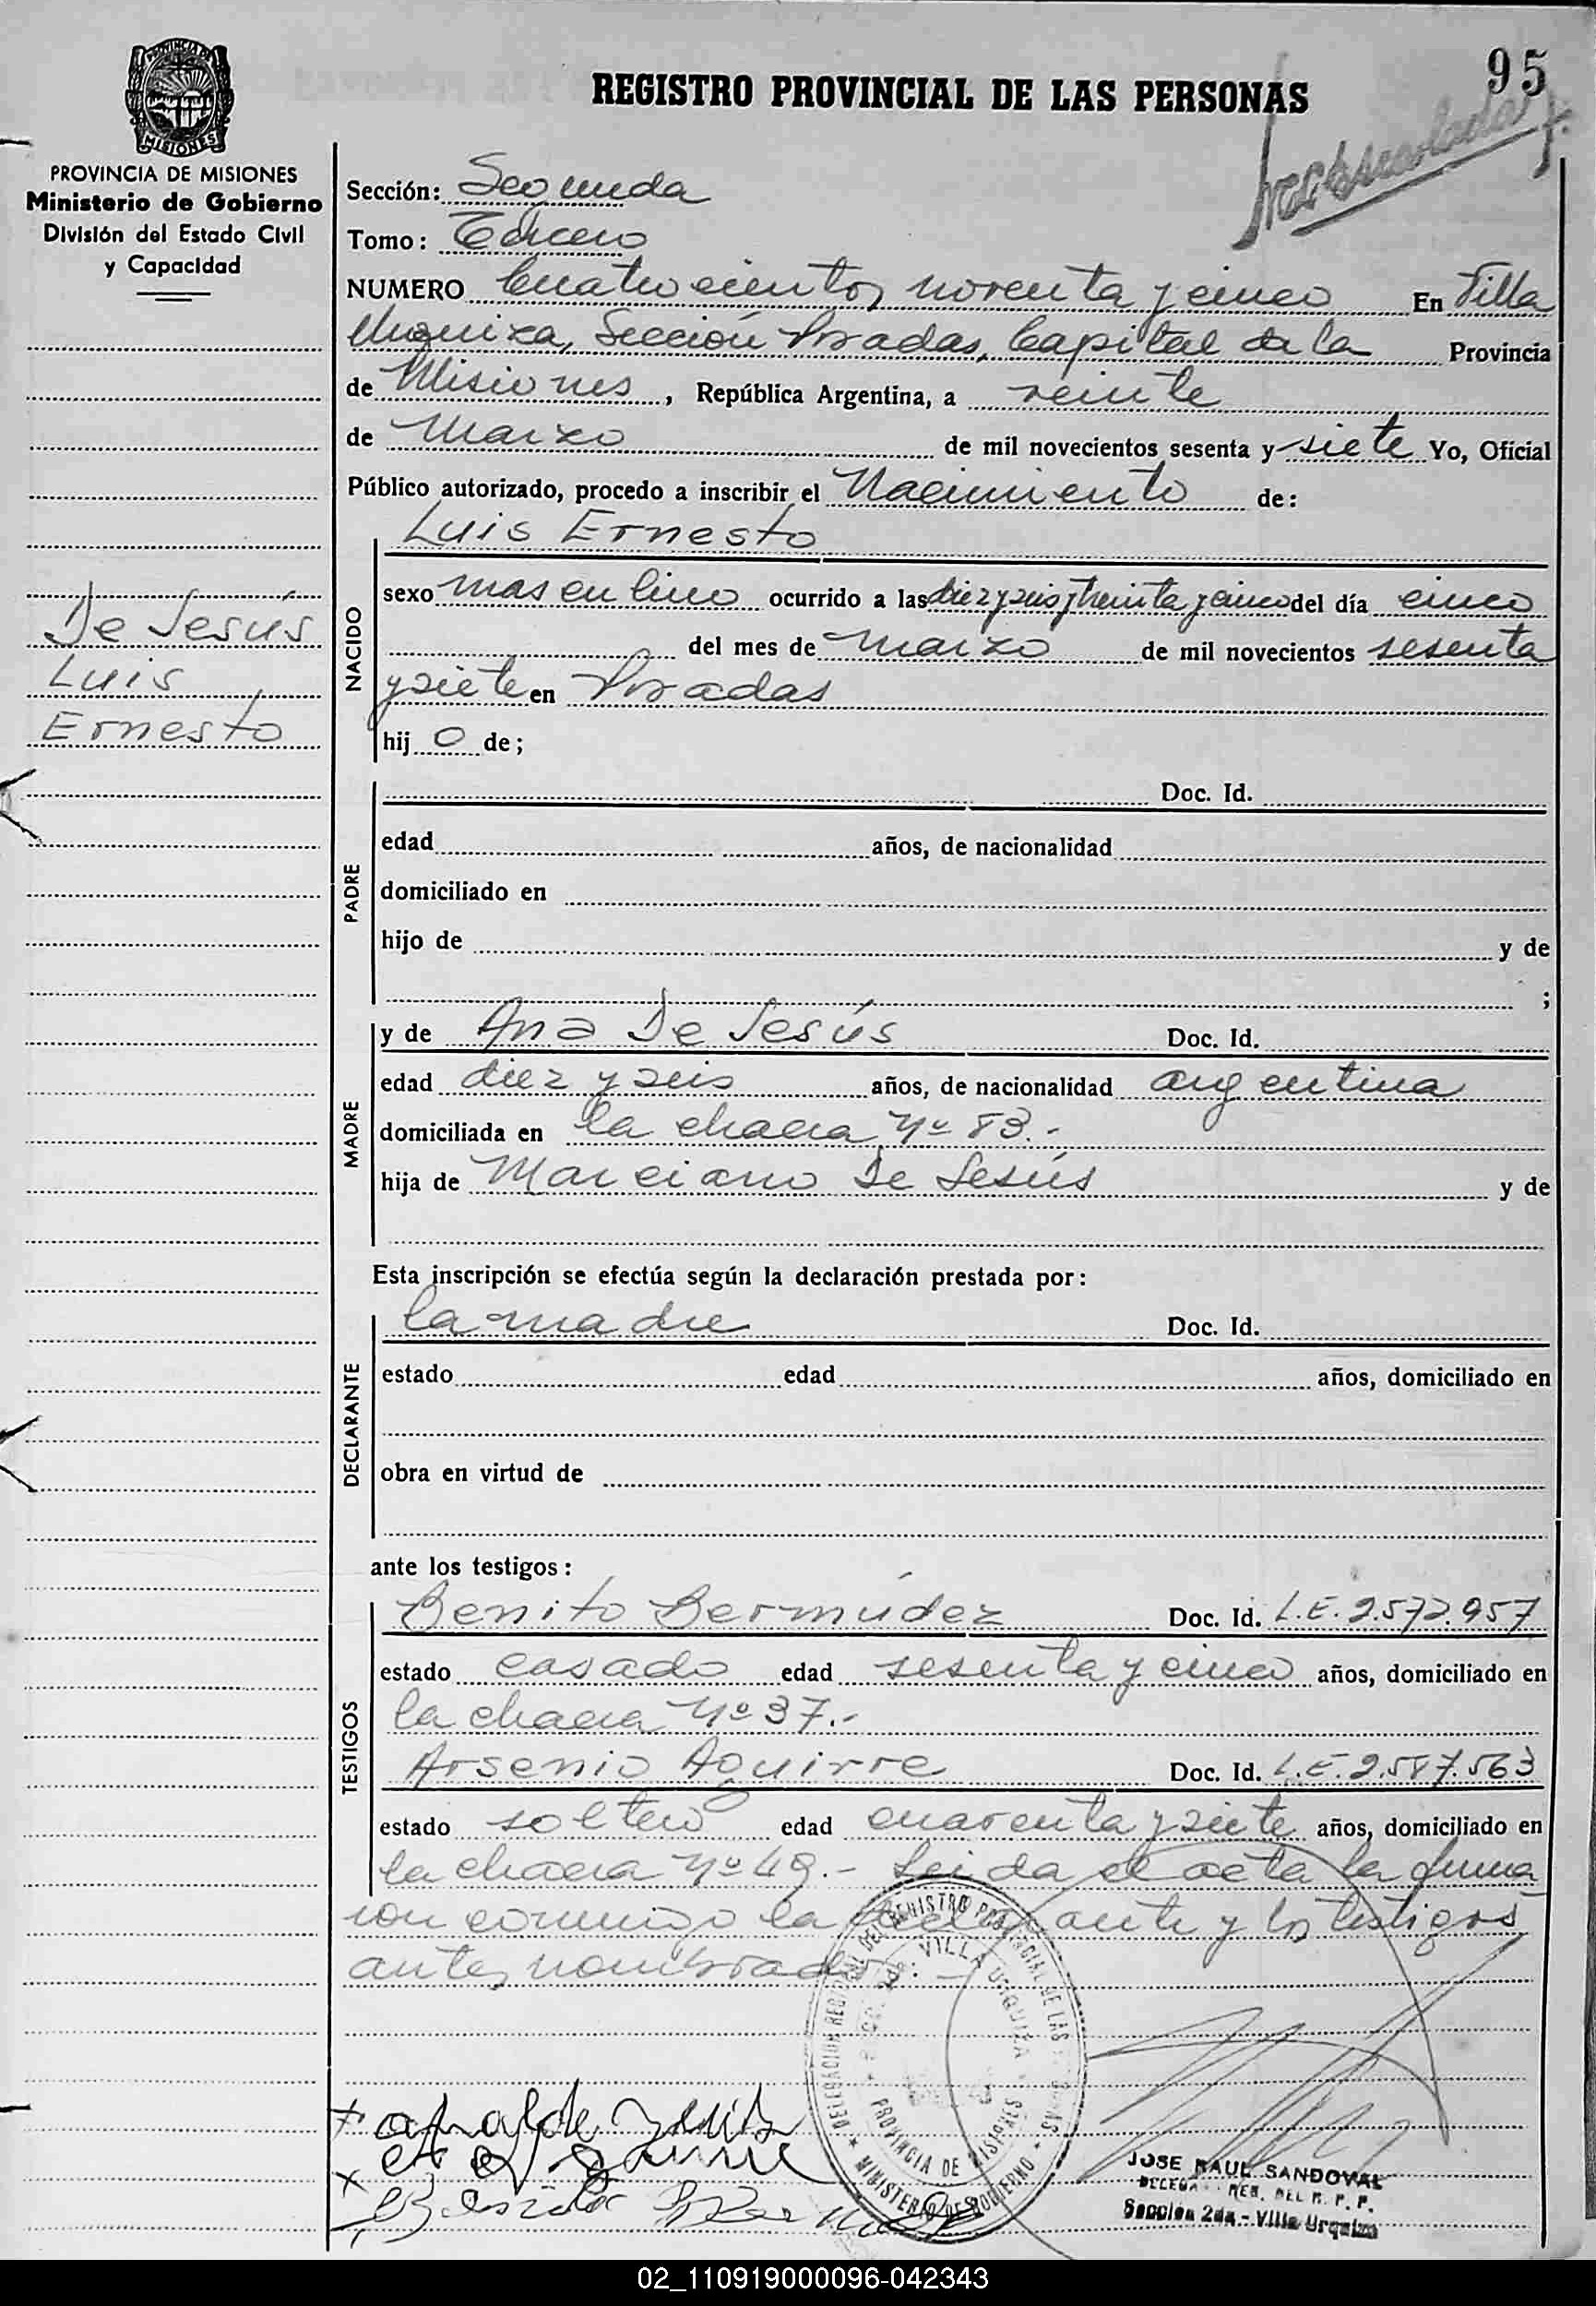 95
REGISTRO PROVINCIAL DE LAS PERSONAS
PROVINCIA DE
MISIONES
PROVINCIA DE MISIONES
Ministerio de Gobierno
División del Estado Civil
y Capacidad
De Jesús
Luis
Ernesto
Sección: Segunda
Tomo: Tercero
NUMERO Cuatrocientos noventa y cinco En Villa
Urquiza, Sección Posadas, Capital de la Provincia
de Misiones, República Argentina, a veinte
de Marzo de mil novecientos sesenta y siete Yo, Oficial
Público autorizado, procedo a inscribir el Nacimiento de:
Luis Ernesto
NACIDO
sexo masculino ocurrido a las diez y seis y treinta y cinco del día cinco
del mes de marzo de mil novecientos sesenta
y siete en Posadas
hij o de;
PADRE
Doc. Id.
edad años, de nacionalidad
domiciliado en
hijo de y de
;
MADRE
y de Ana De Jesús Doc. Id.
edad diez y seis años, de nacionalidad argentina
domiciliada en la chacra Nº 83.-
hija de Marciano De Jesús y de
Esta inscripción se efectúa según la declaración prestada por:
DECLARANTE
la madre Doc. Id.
estado edad años, domiciliado en
obra en virtud de
ante los testigos:
TESTIGOS
Benito Bermúdez Doc. Id. L.E. 2.572.957
estado casado edad sesenta y cinco años, domiciliado en
la chacra Nº 37.-
Arsenio Aguirre Doc. Id. L.E. 2.587.563
estado soltero edad cuarenta y siete años, domiciliado en
la chacra Nº 49.- Leida el acta la firma
ron conmigo la declarante y los testigos
antes nombrados.-
DELEGACION REGIONAL DEL REGISTRO PROVINCIAL DE LAS PERSONAS
VILLA URQUIZA
PROVINCIA DE MISIONES
MINISTERIO DE GOBIERNO
JOSE RAUL SANDOVAL
DELEGA REG. DEL R. P. P.
Sección 2da - Villa Urquiza
02_110919000096-042343